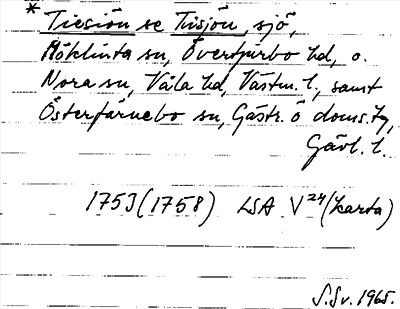 * Tiesiön se Tisjön, sjö,
Möklinta sn, Övertjurbo hd, o.
Nora sn, Våla hd, Västm. l., samt
Österfärnebo sn, Gästr. ö doms.,
Gävl. l.
1753 (1758) LSA V 24 (karta)
S.Sv. 1965.